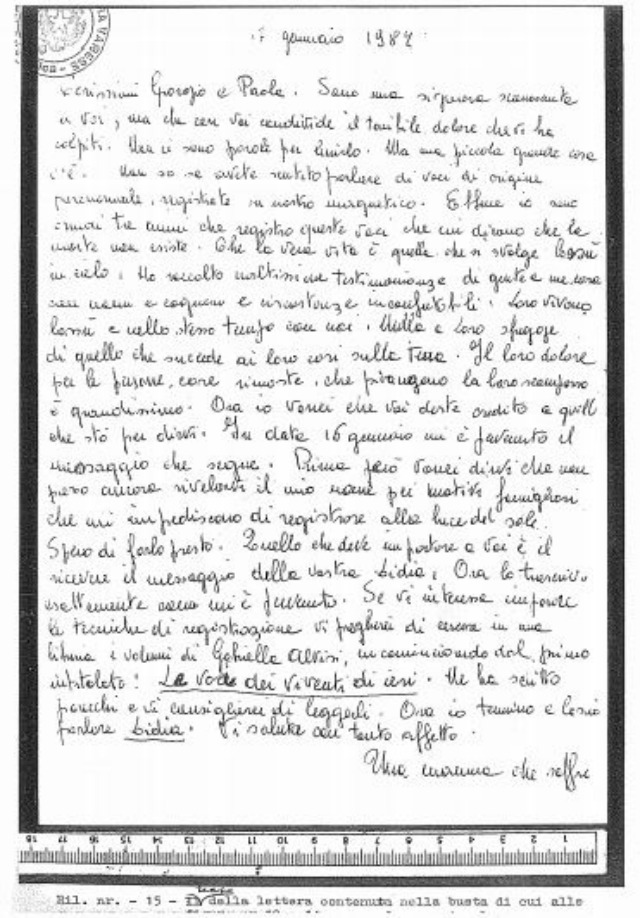 VARESE
17 gennaio 1987
carissimi Giorgio e Paola. Sono una signora sconosciuta
a voi, ma che con voi condivide il terribile dolore che vi ha
colpiti. Non ci sono parole per lenirlo. Ma una piccola grande cosa
c'è. Non so se avete sentito parlare di voci di origine
paranormale, registrate su nastro magnetico. Ebbene io sono
ormai tre anni che registro queste voci che mi dicono che la
morte non esiste. Che la vera vita è quella che si svolge lassù
in cielo. Ho raccolto moltissime testimonianze di gente a me cara
con nomi e cognomi e circostanze inconfutabili. Loro vivono
lassù e nello stesso tempo con noi. Nulla a loro sfugge
di quello che succede ai loro cari sulla Terra. Il loro dolore
per le persone care rimaste, che piangono la loro scomparsa
è grandissimo. Ora io vorrei che voi deste credito a quello
che stò per dirvi. In data 16 gennaio mi è pervenuto il
messaggio che segue. Prima però vorrei dirvi che non
posso ancora rivelarvi il mio nome per motivi famigliari
che mi impediscono di registrare alla luce del sole.
Spero di farlo presto. Quello che deve importare a voi è il
ricevere il messaggio della vostra Lidia. Ora lo trascrivo
esattamente come mi è pervenuto. Se vi interessa imparare
le tecniche di registrazione vi pregherei di cercare in una
libreria i volumi di Gabriella Alvisi, incominciando dal primo
intitolato: Le voci dei viventi di ieri. Ne ha scritto
parecchi e vi consiglierei di leggerli. Ora io termino e lascio
parlare Lidia. Vi saluto con tanto affetto.
Una mamma che soffre
18 17 16 15 14 13 12 11 10 9 8 7 6 5 4 3 2 1
Ril. nr. - 15 - della lettera contenuta nella busta di cui alle